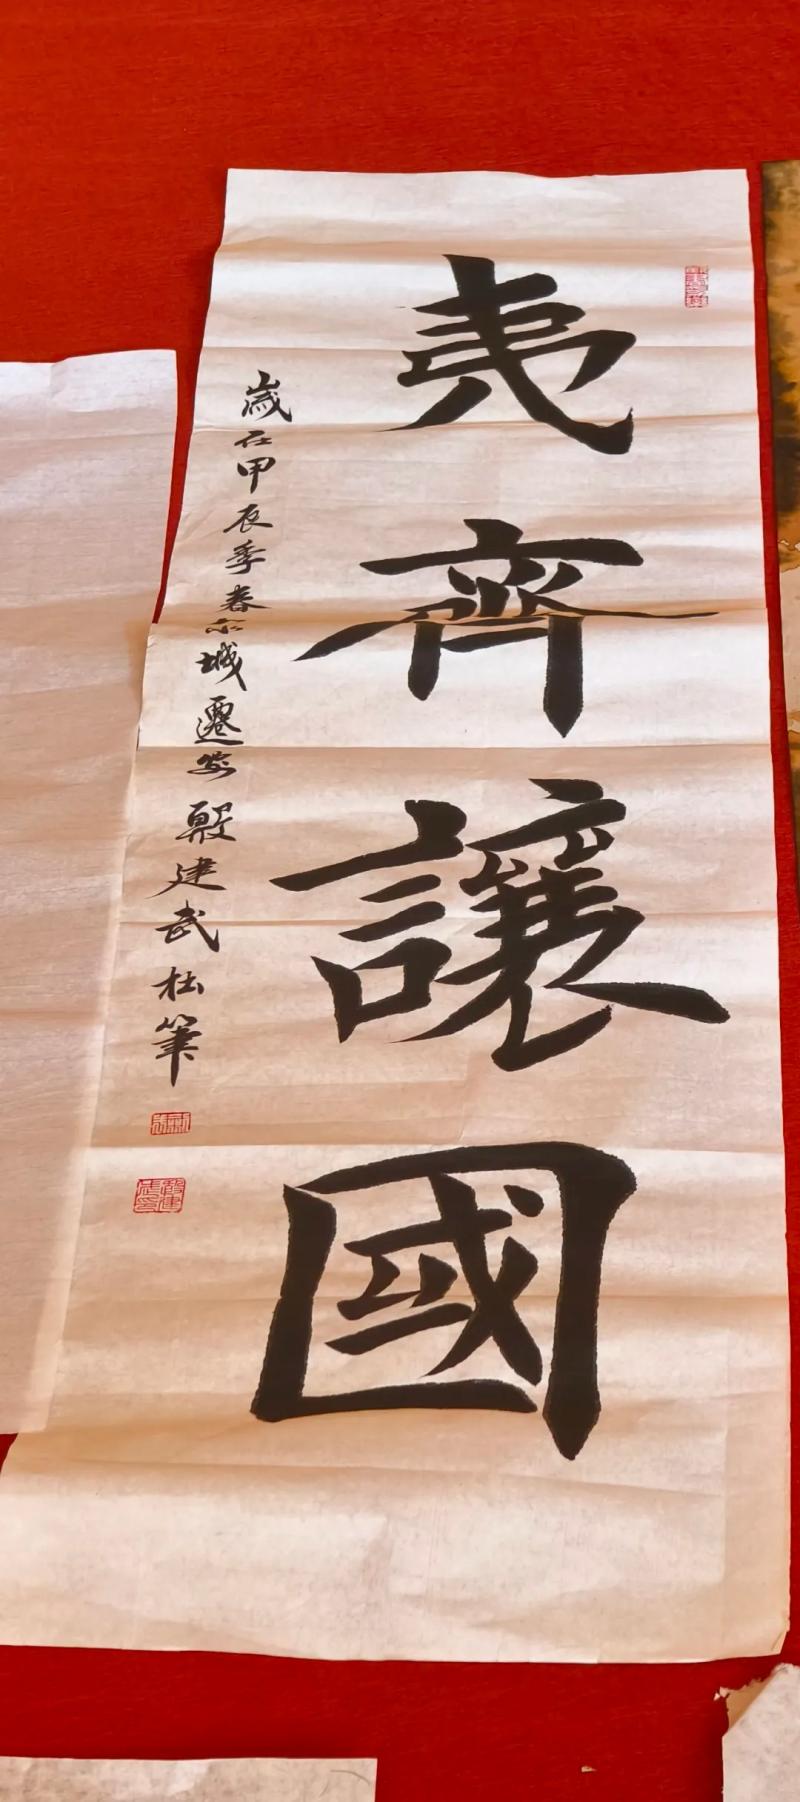 夷齊讓國
歲在甲辰季春京城遷安殷建武拙筆